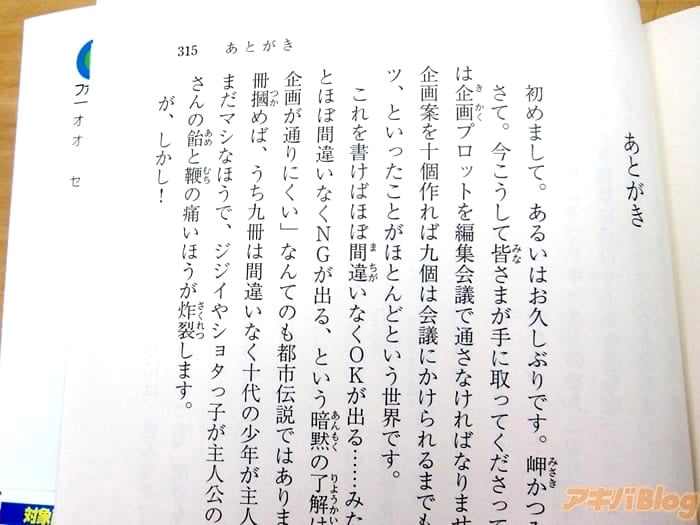 315 あとがき
あとがき
初めまして。あるいはお久しぶりです。岬かつみ
さて。今こうして皆さまが手に取ってくださって
は企画プロットを編集会議で通さなければなりませ
企画案を十個作れば九個は会議にかけられるまでも
ツ、といったことがほとんどという世界です。
これを書けばほぼ間違いなくOKが出る……みた
とほぼ間違いなくNGが出る、という暗黙の了解は
企画が通りにくい」なんてのも都市伝説ではありま
冊摑めば、うち九冊は間違いなく十代の少年が主人
まだマシなほうで、ジジイやショタっ子が主人公の
さんの飴と鞭の痛いほうが炸裂します。
が、しかし！
オオ
セ
対象
アキバBlog